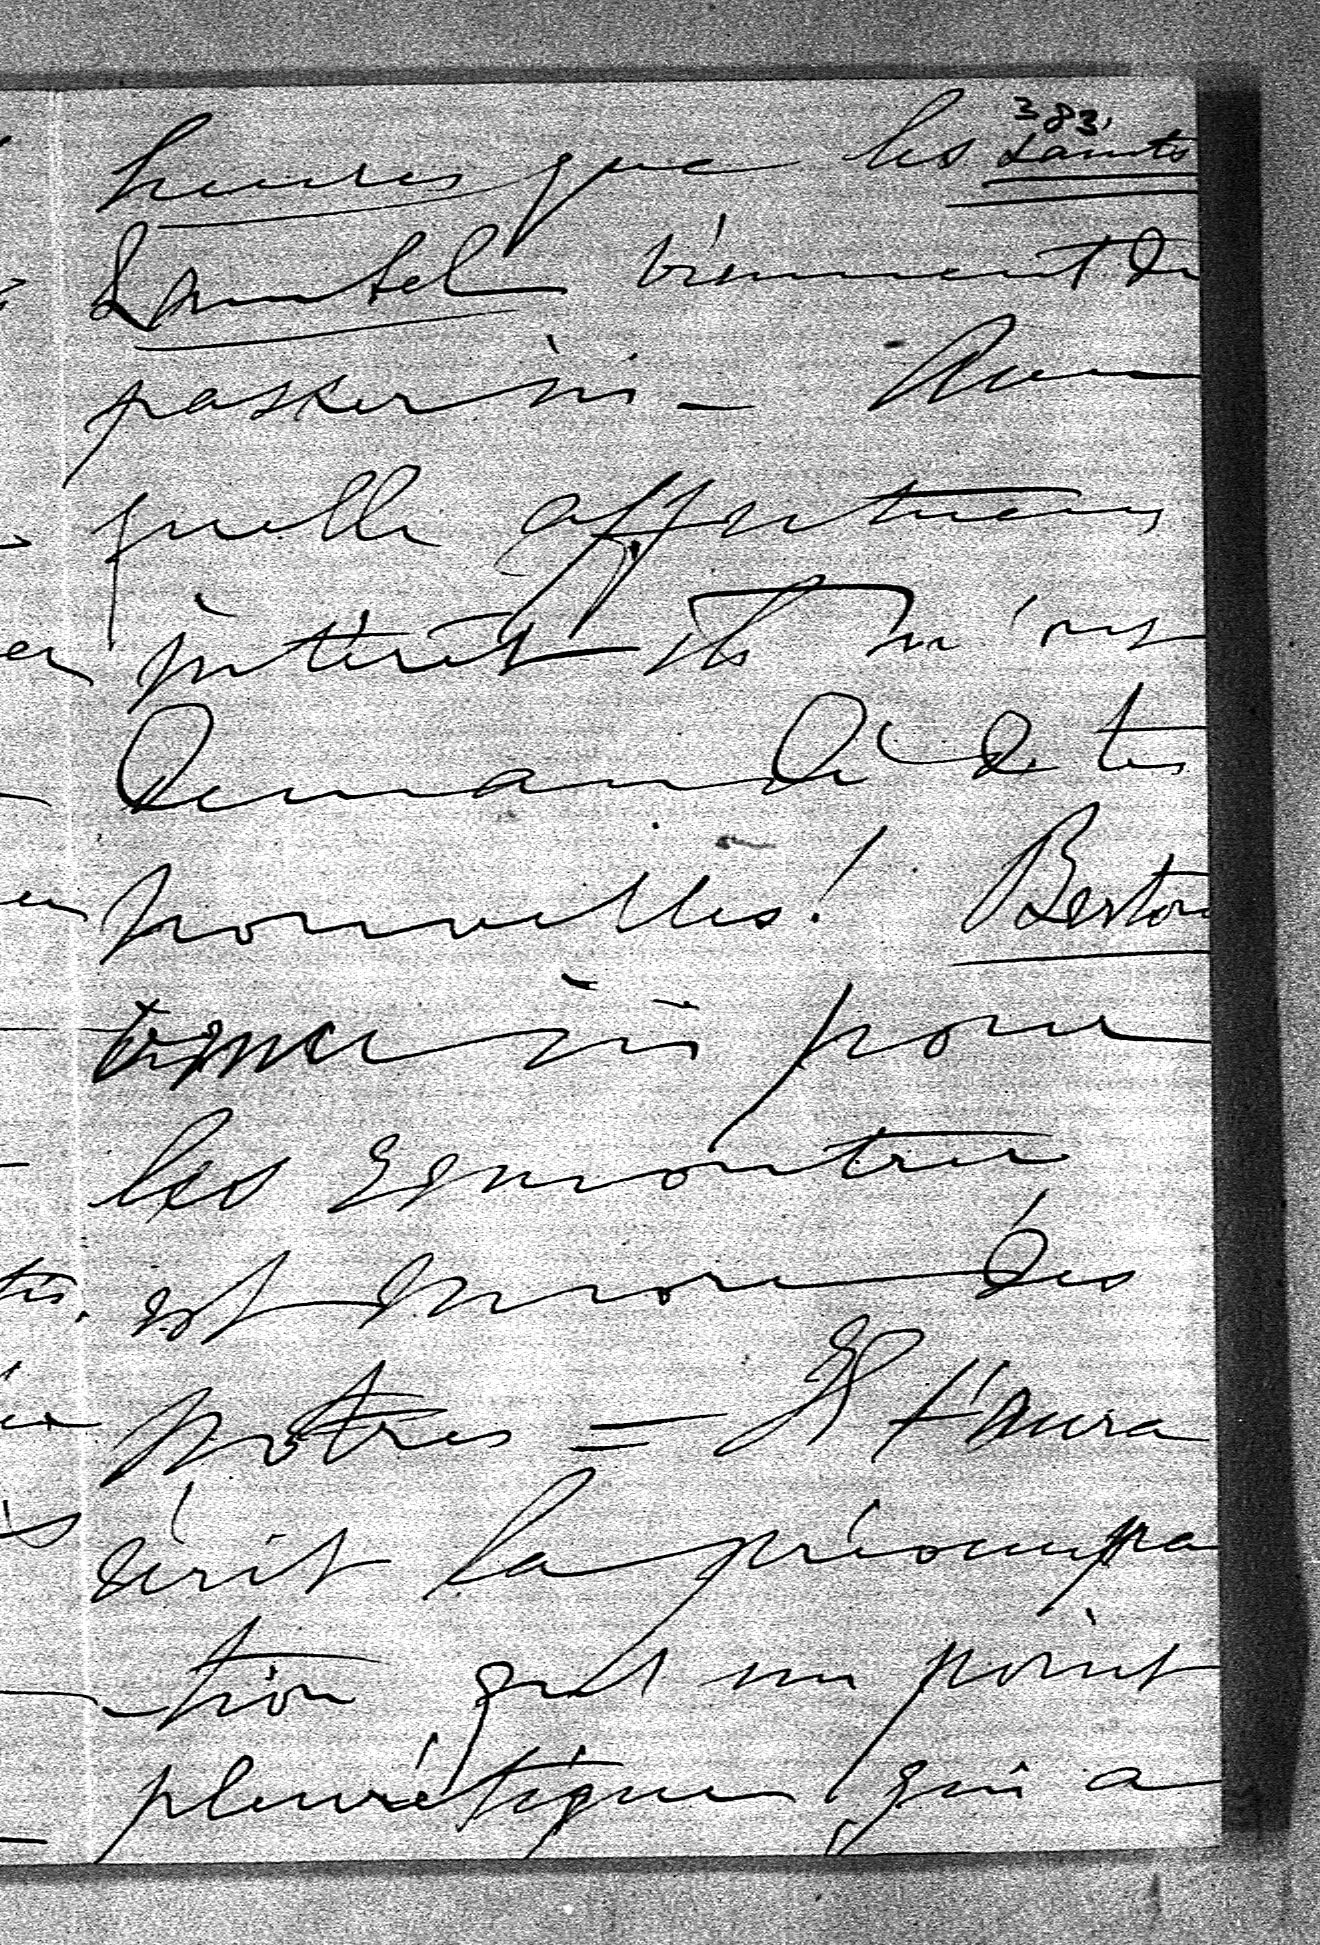 383.
heures que les Saints
Lambel viennent de
passer ici – Avec
quelle affectueux
intérêt ils m'ont
demandé de tes
nouvelles ! Berton
venu ici pour
les rencontrer
est encore des
nôtres = Il t'aura
écrit la préoccupa
tion qu'un point
pleurétique qui a